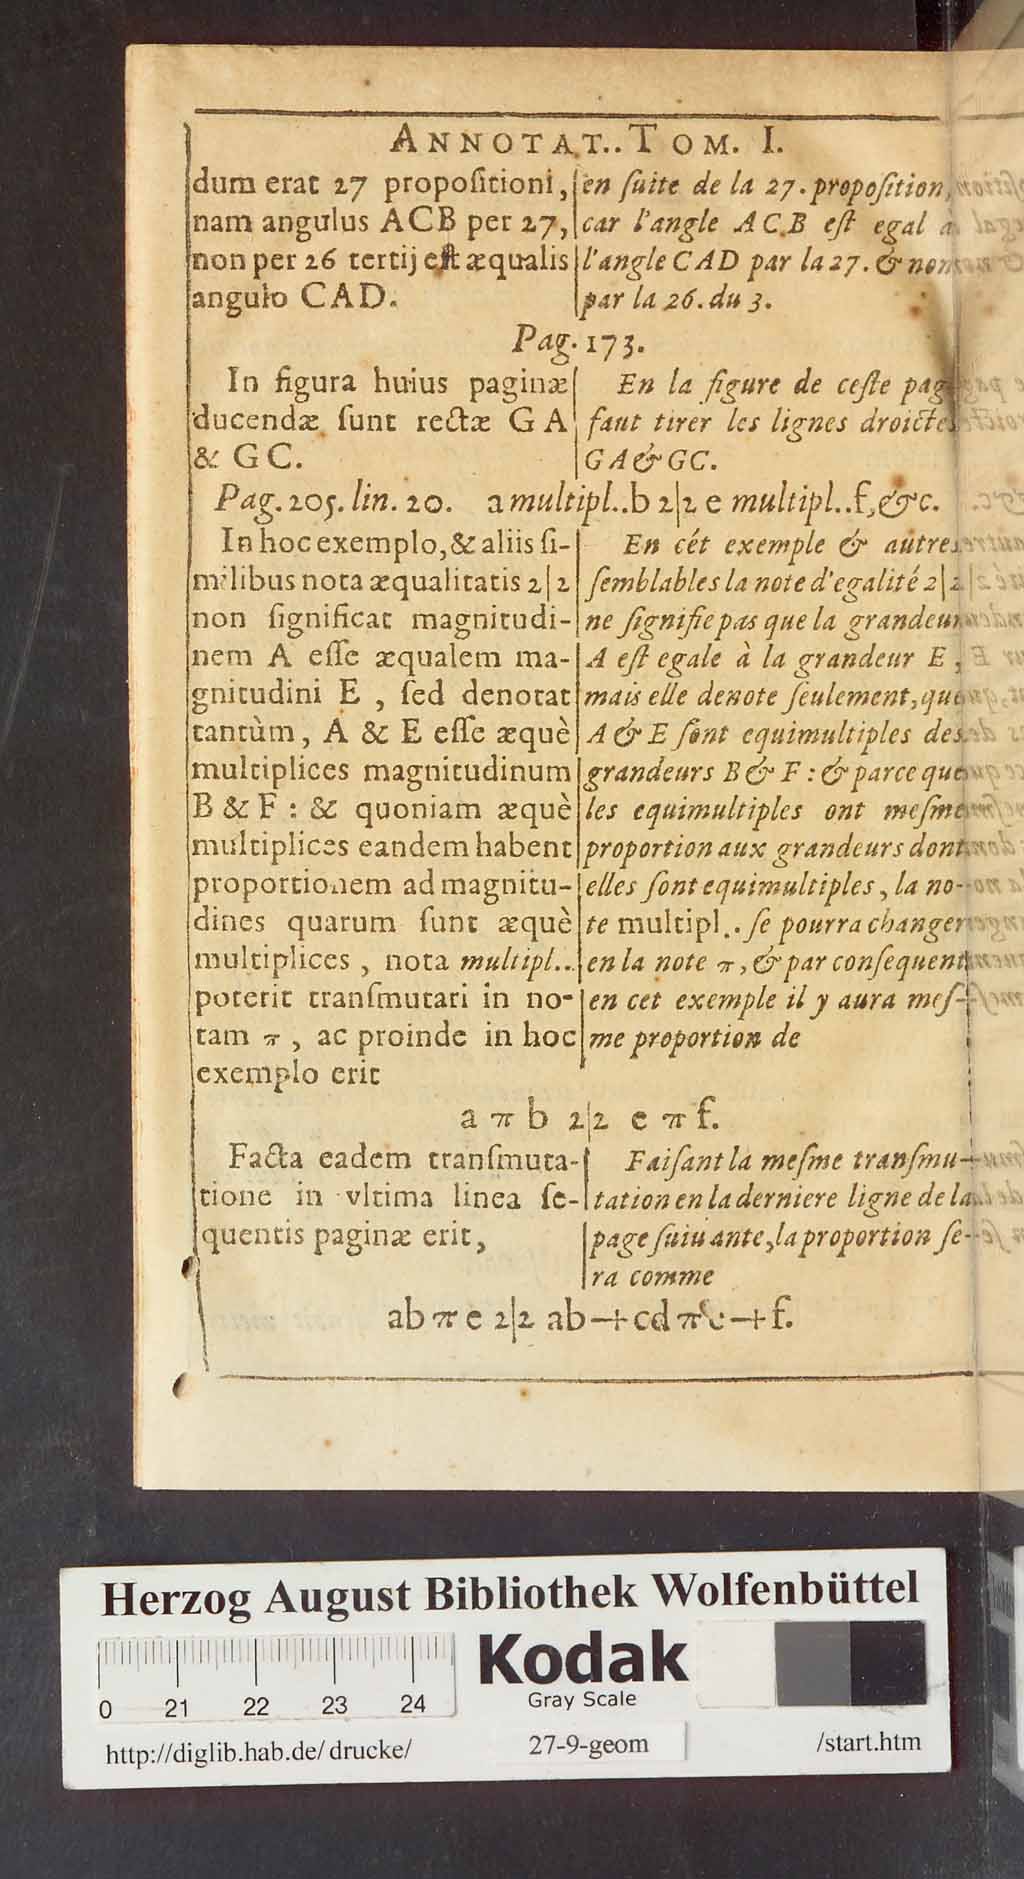 ANNOTAT.. TOM. I.
dum erat 27 propoſitioni,
nam angulus ACB per 27,
non per 26 tertij eſt æqualis
angulo CAD.
en ſuite de la 27. propoſition,
car l'angle ACB eſt egal a
l'angle CAD par la 27. & non
par la 26. du 3.
Pag. 173.
In figura huius paginæ
ducendæ ſunt rectæ GA
& GC.
En la figure de ceſte pag
faut tirer les lignes droictes
GA & GC.
Pag. 205. lin. 20. a multipl..b 2|2 e multipl..f, &c.
In hoc exemplo, & aliis ſi-
milibus nota æqualitatis 2|2
non ſignificat magnitudi-
nem A eſſe æqualem ma-
gnitudini E , ſed denotat
tantùm, A & E eſſe æquè
multiplices magnitudinum
B & F : & quoniam æquè
multiplices eandem habent
proportionem ad magnitu-
dines quarum ſunt æquè
multiplices , nota multipl..
poterit tranſmutari in no-
tam π , ac proinde in hoc
exemplo erit
En cét exemple & autres
ſemblables la note d'egalité 2|2
ne ſignifie pas que la grandeur
A eſt egale à la grandeur E ,
mais elle denote ſeulement, que
A & E ſont equimultiples des
grandeurs B & F : & parce que
les equimultiples ont meſme
proportion aux grandeurs dont
elles ſont equimultiples , la no-
te multipl.. ſe pourra changer
en la note π, & par conſequent
en cet exemple il y aura meſ-
me proportion de
a π b 2|2 e π f.
Facta eadem tranſmuta-
tione in vltima linea ſe-
quentis paginæ erit,
Faiſant la meſme tranſmu-
tation en la derniere ligne de la
page ſuiuante, la proportion ſe-
ra comme
ab π e 2|2 ab + cd π e + f.
Herzog August Bibliothek Wolfenbüttel
Kodak
Gray Scale
0 21 22 23 24
http://diglib.hab.de/drucke/ 27-9-geom /start.htm